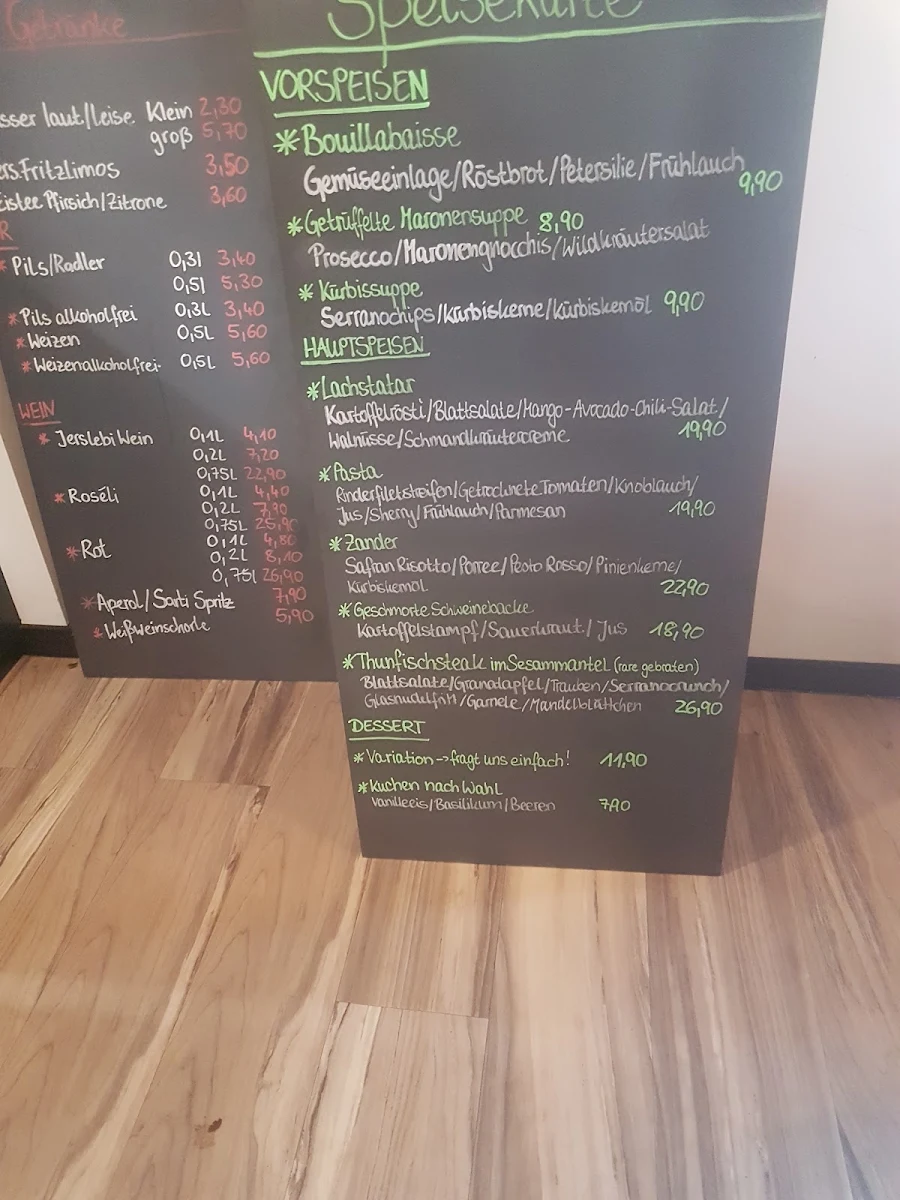 Getränke
sser laut/leise. Klein 2,30
groß 5,70
ers. Fritzlimos 3,50
Eistee Pfirsich/Zitrone 3,60
R
* Pils/Radler 0,3l 3,40
0,5l 5,30
* Pils alkoholfrei 0,3L 3,40
* Weizen 0,5L 5,60
* Weizenalkoholfrei- 0,5L 5,60
WEIN
* Jerslebi Wein 0,1L 4,10
0,2L 7,20
0,75L 22,90
* Roséli 0,1L 4,40
0,2L 7,90
0,75L 25,90
* Rot 0,1L 4,80
0,2L 8,10
0,75l 26,90
* Aperol/Sarti Spritz 7,90
* Weißweinschorle 5,90
Speisekarte
VORSPEISEN
* Bouillabaisse
Gemüseeinlage/Röstbrot/Petersilie/Frühlauch
9,90
* Getrüffelte Maronensuppe 8,90
Prosecco/Maronengnocchis/Wildkräutersalat
* Kürbissuppe
Serranochips/Kürbiskerne/Kürbiskernöl 9,90
HAUPTSPEISEN
* Lachstatar
Kartoffelrösti/Blattsalate/Mango-Avocado-Chili-Salat/
Walnüsse/Schmandkräutercreme 19,90
* Pasta
Rinderfiletstreifen/Getrocknete Tomaten/Knoblauch/
Jus/Sherry/Frühlauch/Parmesan 19,90
* Zander
Safran Risotto/Porree/Pesto Rosso/Pinienkerne/
Kürbiskernöl 22,90
* Geschmorte Schweinebacke
Kartoffelstampf/Sauerkraut/Jus 18,90
* Thunfischsteak im Sesammantel (rare gebraten)
Blattsalate/Granatapfel/Trauben/Serranocrunch/
/Garnele/Mandelblättchen 26,90
DESSERT
* Variation -> fragt uns einfach! 11,90
* Kuchen nach Wahl
Vanilleeis/Basilikum/Beeren 7,90